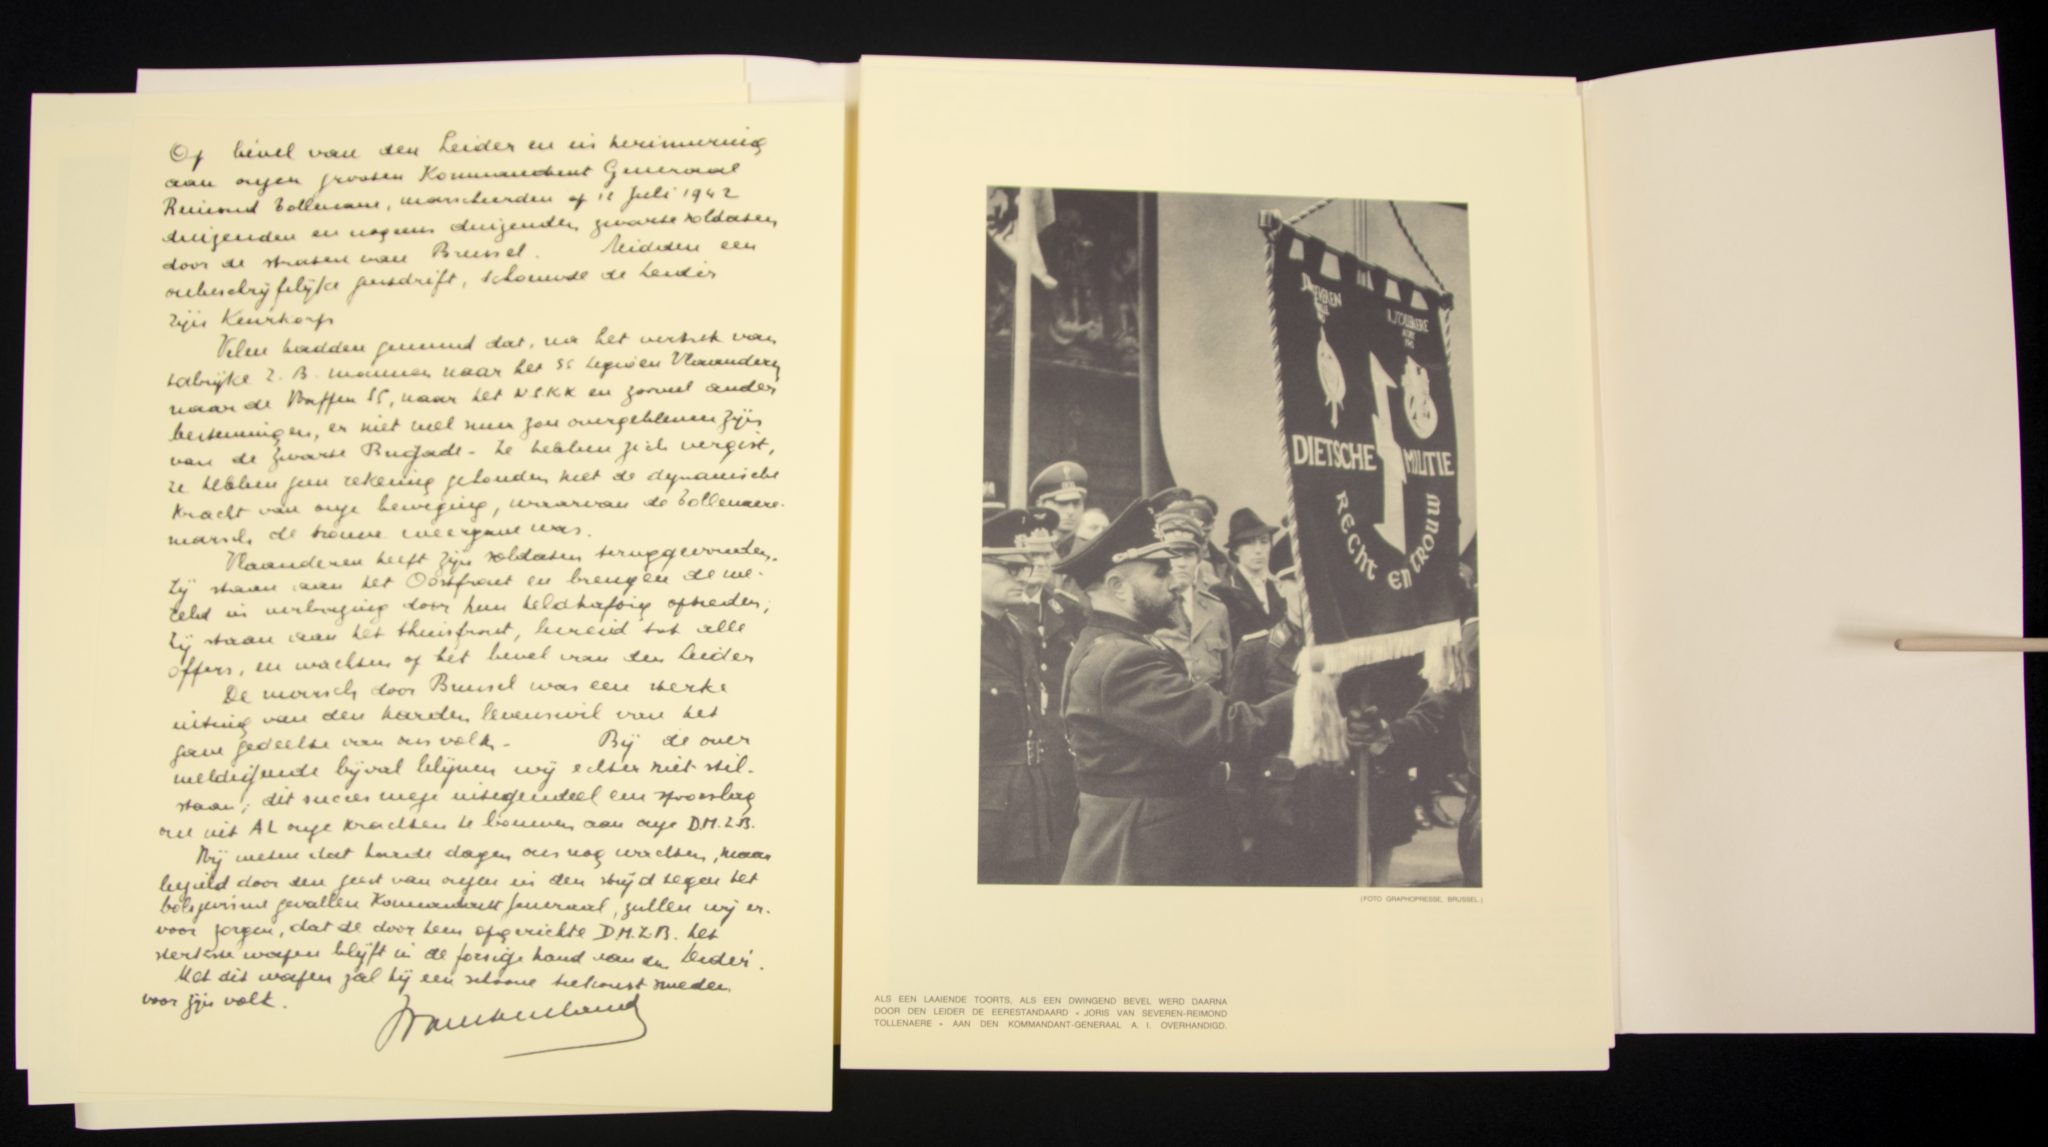 Op bevel van den Leider en in herinnering
aan onzen grooten Kommandant Generaal
Reimond Tollenaere, marscheerden op 12 Juli 1942
duizenden en nogeens duizenden zwarte soldaten
door de straten van Brussel. Midden een
onbeschrijfelijke geestdrift, schouwde de Leider
zijn Keurkorps
Velen hadden gemeend dat, na het vertrek van
talrijke Z. B. mannen naar het SS Legioen Vlaanderen
naar de Waffen SS, naar het NSKK en zooveel ander
bestemmingen, er niet veel meer zou overgebleven zijn
van de Zwarte Brigade - Ze hebben zich vergist,
ze hebben geen rekening gehouden met de dynamische
kracht van onze beweging, waarvan de Tollenaere-
marsch de trouwe weergave was.
Vlaanderen heeft zijn soldaten teruggevonden.
Zij staan aan het Oostfront en brengen de we-
reld in verbazing door hun heldhaftig optreden;
Zij staan aan het thuisfront, bereid tot alle
offers, en wachten op het bevel van den Leider
De marsch door Brussel was een sterke
uiting van den harden levenswil van het
gave gedeelte van ons volk - Bij de over
weldigende bijval blijven wij echter niet stil-
staan; dit succes weze integendeel een spoorslag
om uit AL onze krachten te bouwen aan onze D.M.Z.B.
Wij weten dat harde dagen ons nog wachten, maar
bezield door den geest van onzen in den strijd tegen het
bolsjevisme gevallen Kommandant Generaal, zullen wij er-
voor zorgen, dat de door hem opgerichte D.M.Z.B. het
sterkste wapen blijft in de forsige hand van den Leider.
Met dit wapen zal hij een schoone toekomst smeden
voor zijn volk.
J. VAN SEVEREN
R. TOLLENAERE
DIETSCHE MILITIE
RECHT EN TROUW
(FOTO GRAPHOPRESSE, BRUSSEL.)
ALS EEN LAAIENDE TOORTS, ALS EEN DWINGEND BEVEL WERD DAARNA
DOOR DEN LEIDER DE EERESTANDAARD « JORIS VAN SEVEREN-REIMOND
TOLLENAERE » AAN DEN KOMMANDANT-GENERAAL A. I. OVERHANDIGD.